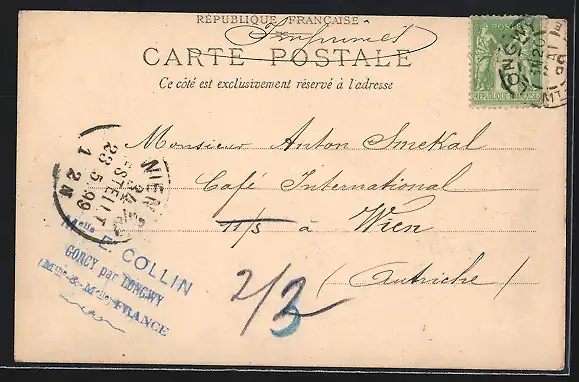 RÉPUBLIQUE FRANÇAISE
Imprimés
CARTE POSTALE
Ce côté est exclusivement réservé à l'adresse
RÉPUBLIQUE FRANÇAISE
Monsieur Anton Smekal
Café International
11/5 à Wien
(Autriche)
2/2
3
WIEN
BESTELLT
23 5. 99
1 2N
Melle E. COLLIN
GORCY par LONGWY
(Mthe-&-Melle) FRANCE